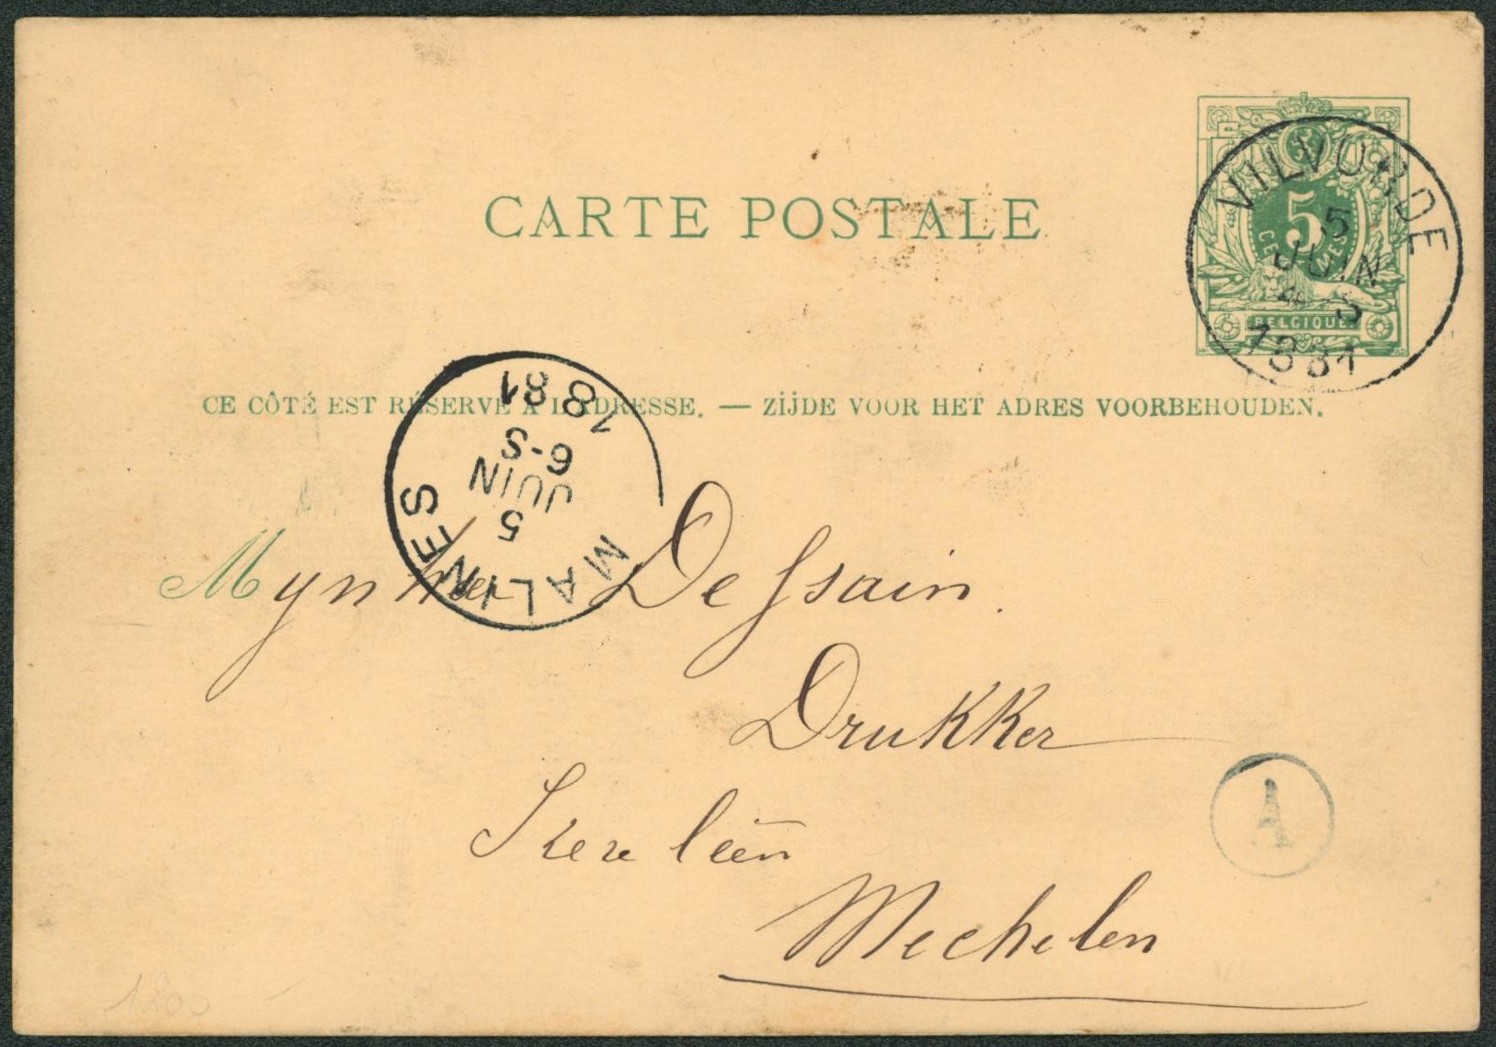 CARTE POSTALE
5
CENTIMES
BELGIQUE
VILVORDE
5
JUIN
4-S
1881
CE CÔTÉ EST RÉSERVÉ À L'ADRESSE. — ZIJDE VOOR HET ADRES VOORBEHOUDEN.
MALINES
5
JUIN
6-S
1881
Mynheer Dessain.
Drukker
Mechelen
A
1200